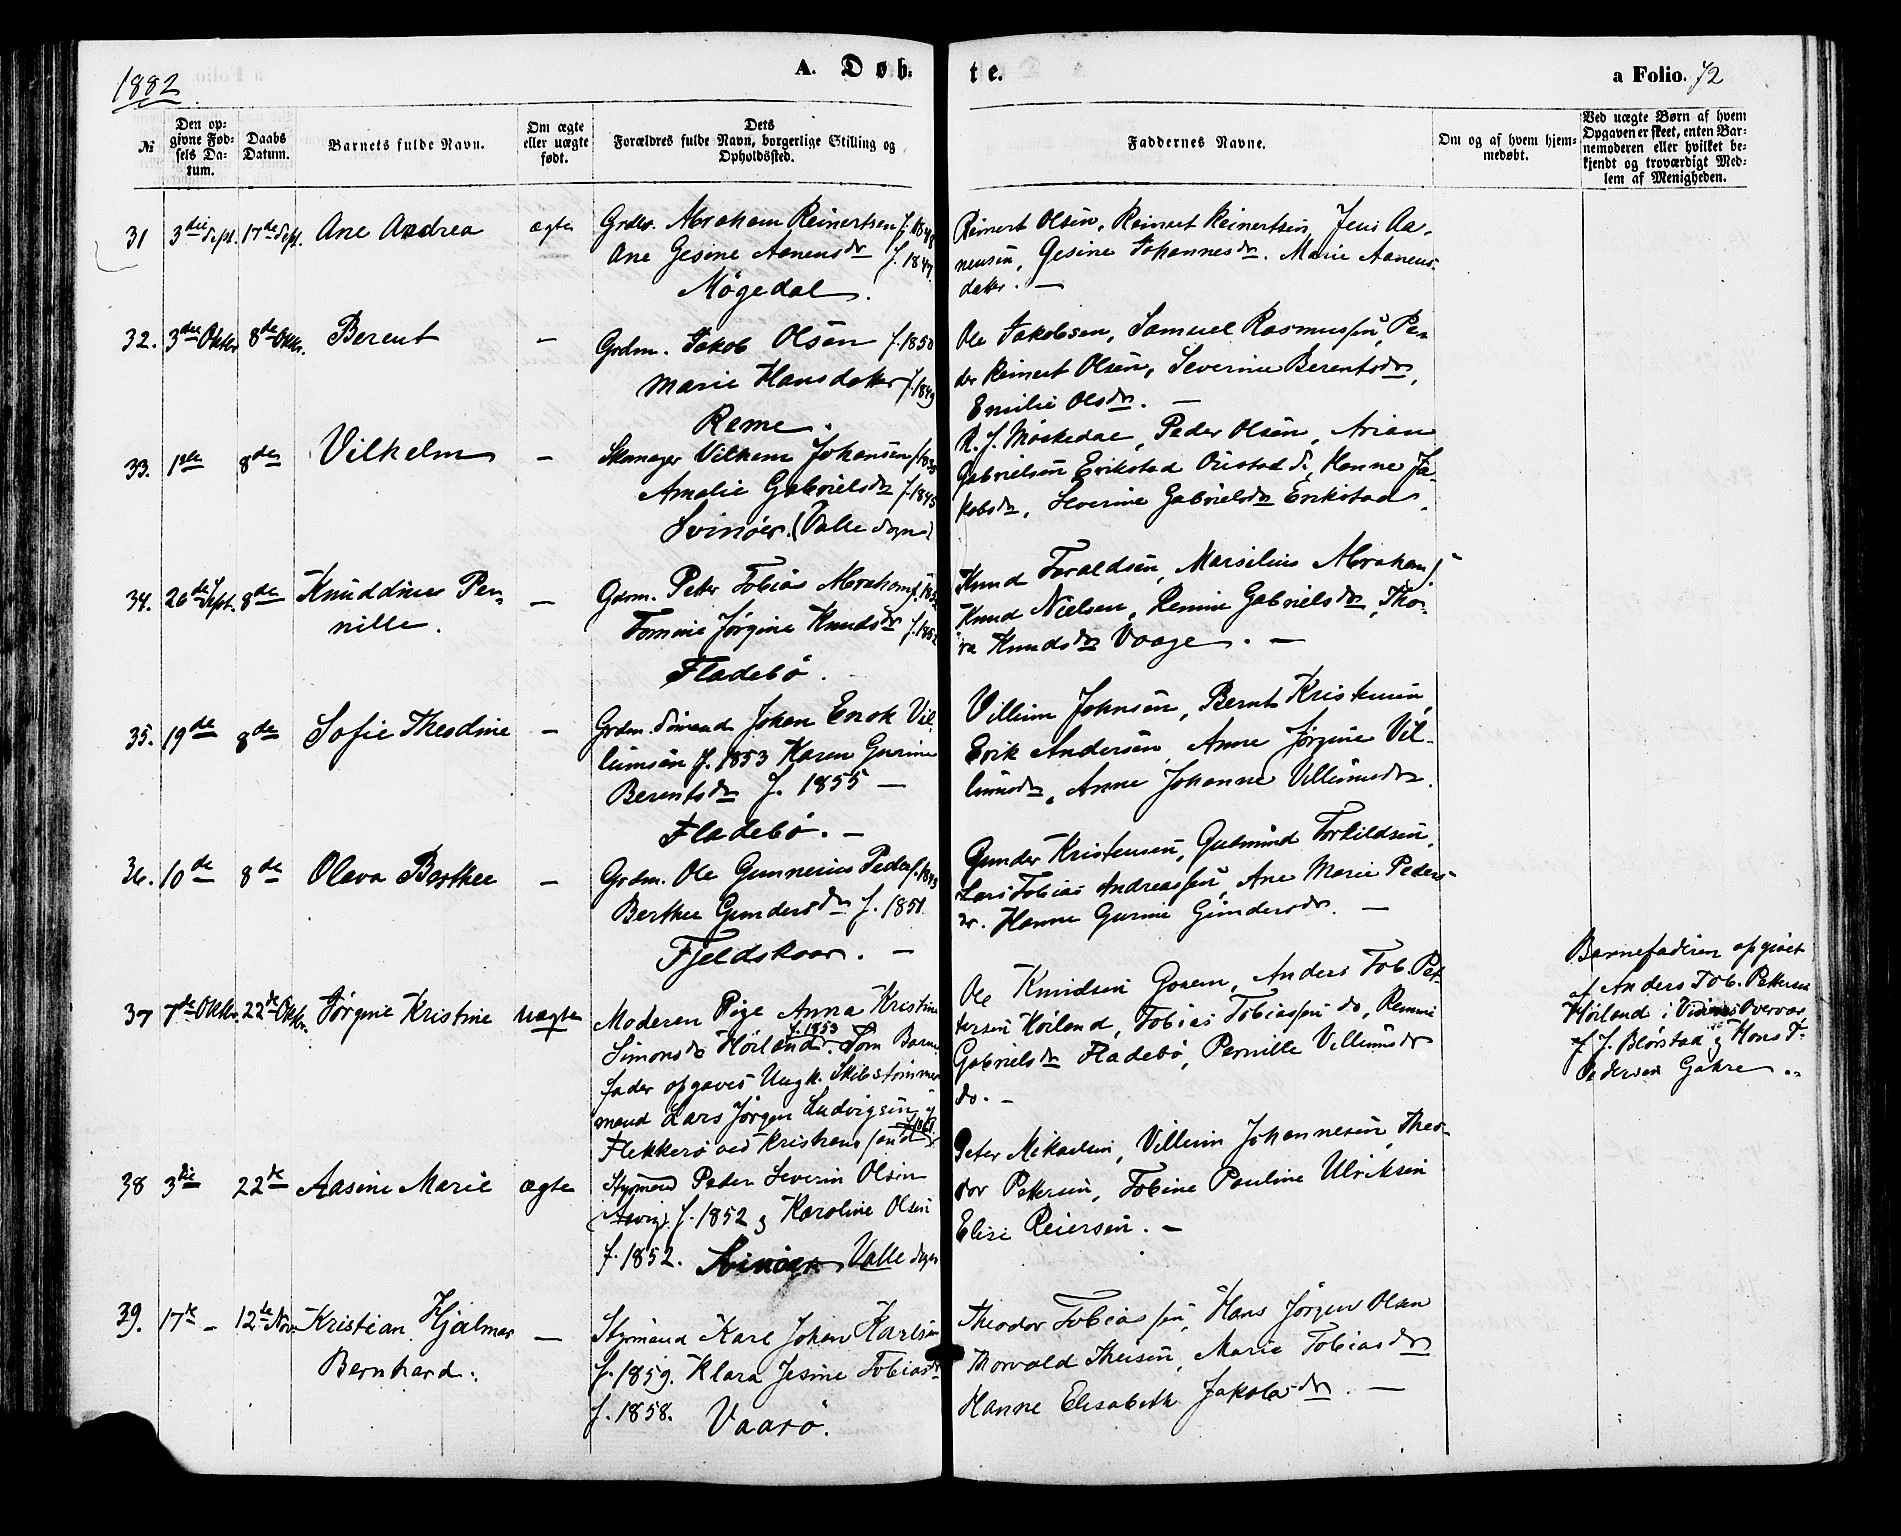 1882
A. Døb-
te.
a Folio. 72
№
Den op-
givne Fød-
sels Da-
tum.
Daabs
Datum.
Barnets fulde Navn.
Om ægte
eller uægte
født.
Dets
Forældres fulde Navn, borgerlige Stilling og
Opholdssted.
Faddernes Navne.
Om og af hvem hjem-
medøbt.
Ved uægte Børn af hvem
Opgaven er skeet, enten Bar-
nemoderen eller hvilket be-
kjendt og troværdigt Med-
lem af Menigheden.
31 3die Sept. 17de Sept. Ane Andrea ægte
Grdbr. Abraham Reinertsen f. 1848
Ane Gesine Aanensdr f. 1847
Møgedal.
Reinert Olsen, Reinert Reinertsen, Jens Aa-
nensen, Gesine Johannesdr. Marie Aanens-
datter. —
32. 3die Oktbr 8de Oktbr. Berent —
Grdm. Jakob Olsen f. 1850
Marie Hansdatter f. 1849
Reme.
Ole Jakobsen, Samuel Rasmussen, Pe-
der Reinert Olsen, Severine Berentsdr,
Emilie Olsdr. —
33. 1ste 8de Vilhelm —
Skomager Vilhem Johansen
Amalie Gabrielsdr f. 1845
Svinøer. (Valle Sogn)
R. J. Møskedal, Peder Olsen, Arian
Gabrielsen Erikstad, Hanne Ja-
kobsdr, Severine Gabrielsdr Erikstad.
34. 26de Sept. 8de Knuddine Per-
nille. —
Gdrm. Peter Tobias Abrahams.
Tomine Jørgine Knudsdr f. 1852
Fladebø.
Knud Taraldsen, Marselius Abrahams.
Knud Nielsen, Remine Gabrielsdr, Tho-
ra Knudsdr Vaage. —
35. 19de 8de Sofie Theodine —
Grdm. Sømand Johan Enok Vil-
lumsen f. 1853 Karen Gurine
Berentsdr f. 1855 —
Fladebø. —
Villum Johnsen, Bernt Kristensen
Erik Andersen, Anne Jørgine Vil-
lumsdr, Anne Johanne Villumsdr.
36. 10de 8de Oleva Berthee —
Grdm. Ole Gunnerius Peders.
Berthee Gundersdr f. 1851.
Fjeldskaar. —
Gunder Kristensen, Gudmund Torkildsen,
Lars Tobias Andreassen, Ane Marie Peders-
dr. Hanne Gurine Gundersdr. —
37 7de Oktbr. 22de Oktbr. Jørgine Kristine uægte
Moderen Pige Anna Kristine
Simonsdr Høiland f. 1853. Som Barne-
fader opgaves Ungk. Skibstømmer-
mand Lars Jørgen Ludvigsen
Flekkerø ved Kristianssand
Ole Knudsen Goven, Anders Tob. Pet-
tersen Høiland, Tobias Tobiassen do, Remine
Gabrielsdr Fladebø, Pernille Villumsdr
do. —
Barnefaderen opgivet
af Anders Tob. Pettersen
Høiland i Overvær
af J. Blørstad og Hans T.
Pedersen Gahre
38 3die 22de Aasine Marie ægte
Styrmand Peder Severin Olsen
f. 1852 & Karoline Olsen
f. 1852. Svinøer, Valle Sogn
Peter Mikaelsen, Villum Johannesen, Theo-
dor Pettersen, Tobine Pauline Ulriksen
Elise Reiersen. —
39. 17de — 12te Novbr Kristian Hjalmar
Bernhard. —
Styrmand Karl Johan Karlsen
f. 1859. Klara Jesine Tobiasdr
f. 1858. Vaarø.
Theodor Tobiassen, Hans Jørgen Olsen
Thorvald Theisen, Marie Tobiasdr
Hanne Elisabeth Jakobsdr. —